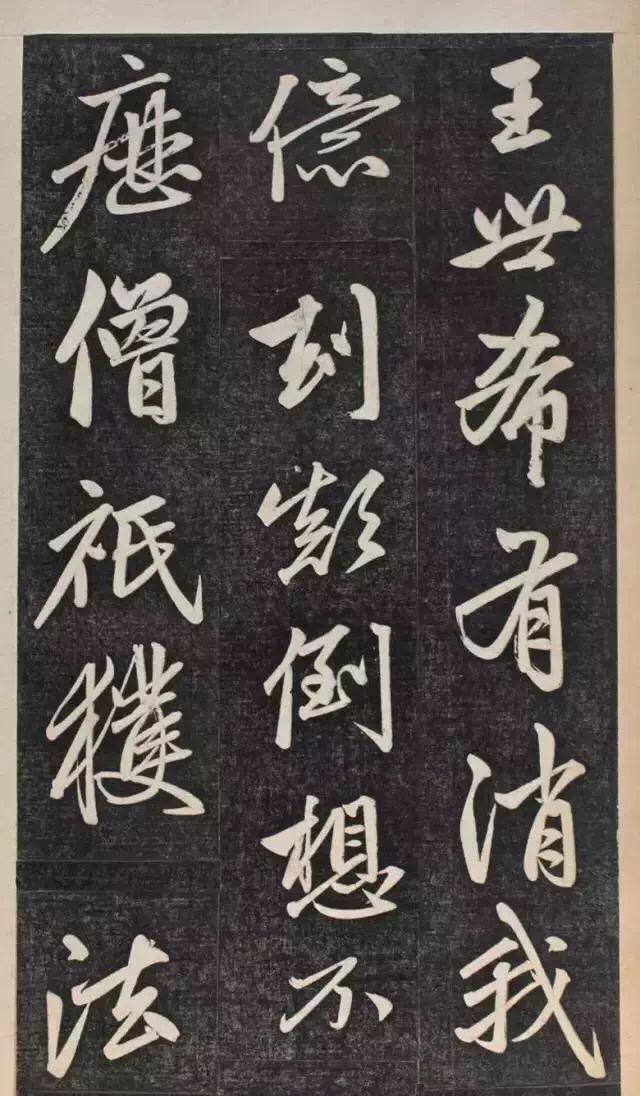 王世希有消我
億劫顛倒想不
歷僧祇穫法